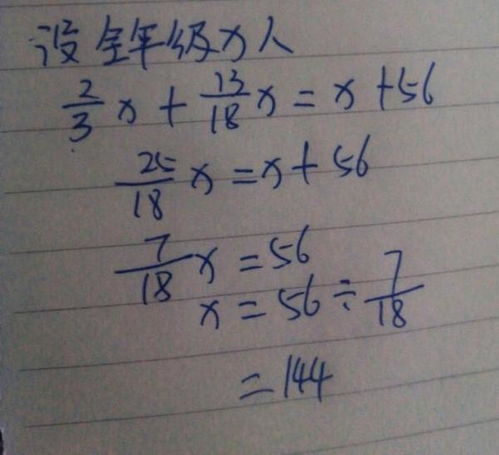 设全年级x人
2/3 x + 13/18 x = x + 56
25/18 x = x + 56
7/18 x = 56
x = 56 ÷ 7/18
= 144